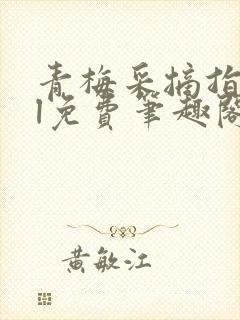 青梅采摘指
1免费笔趣阁
黄敏江